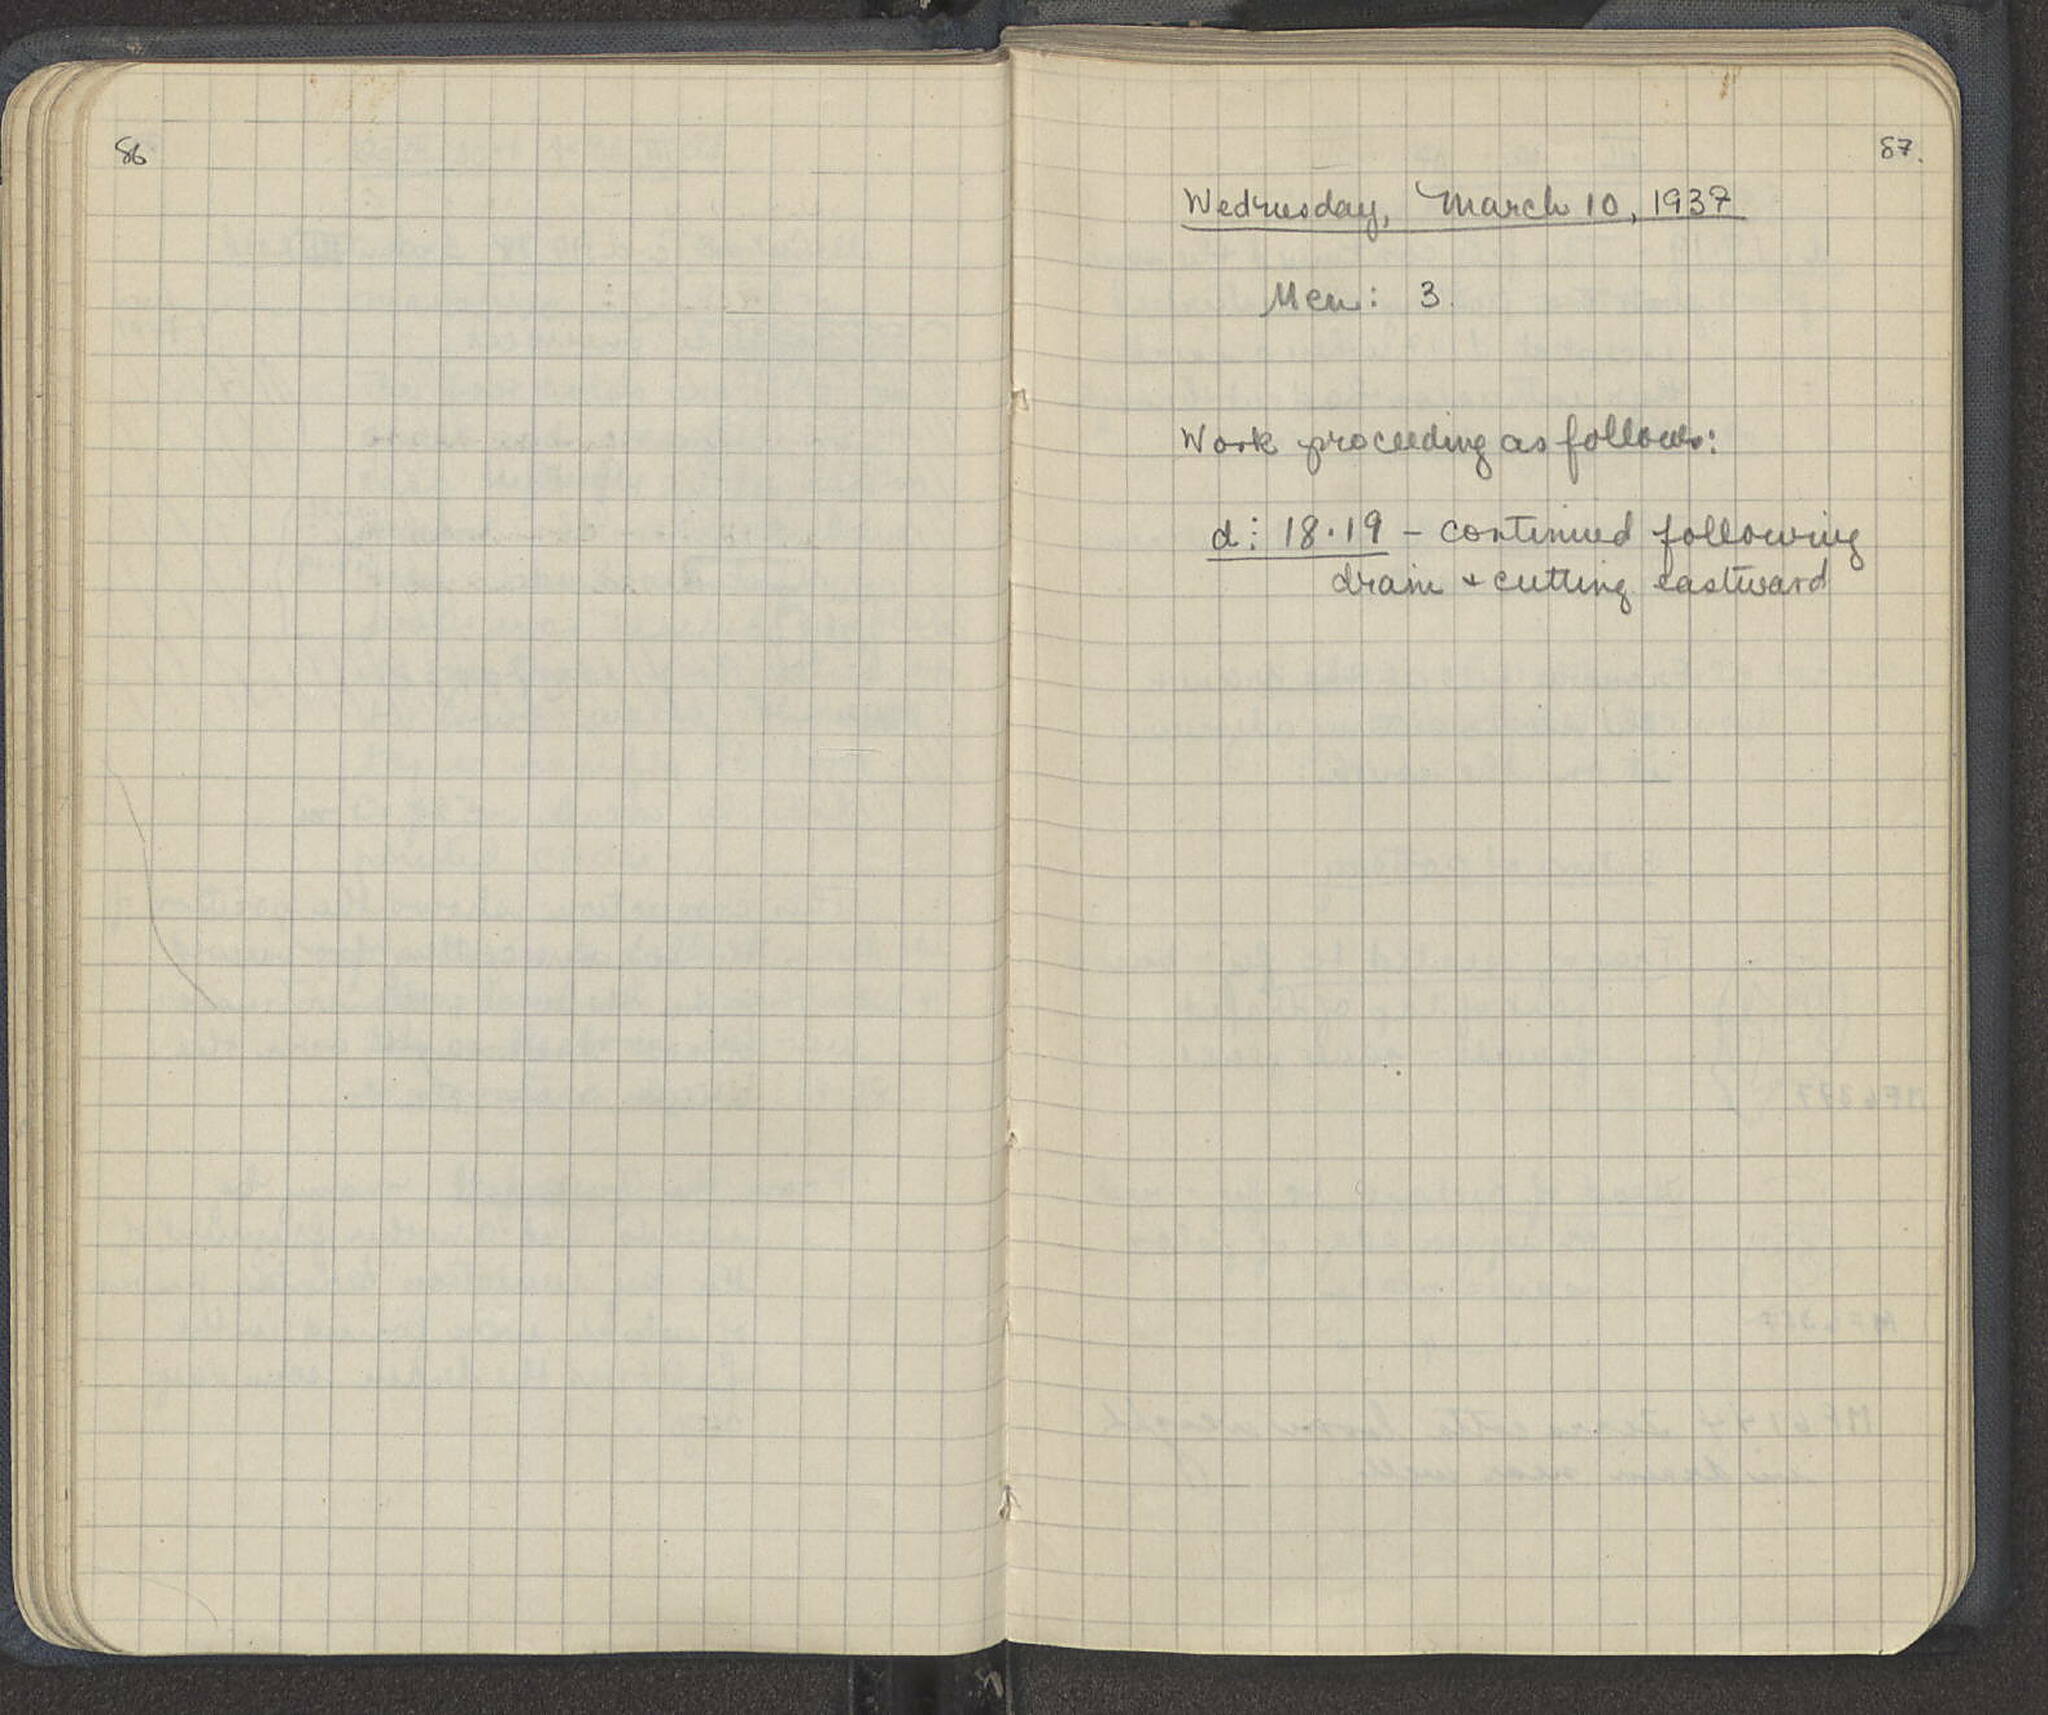 86
87.
Wednesday, March 10, 1937
Men: 3.
Work proceeding as follows:
d: 18.19 - continued following
drain + cutting eastward